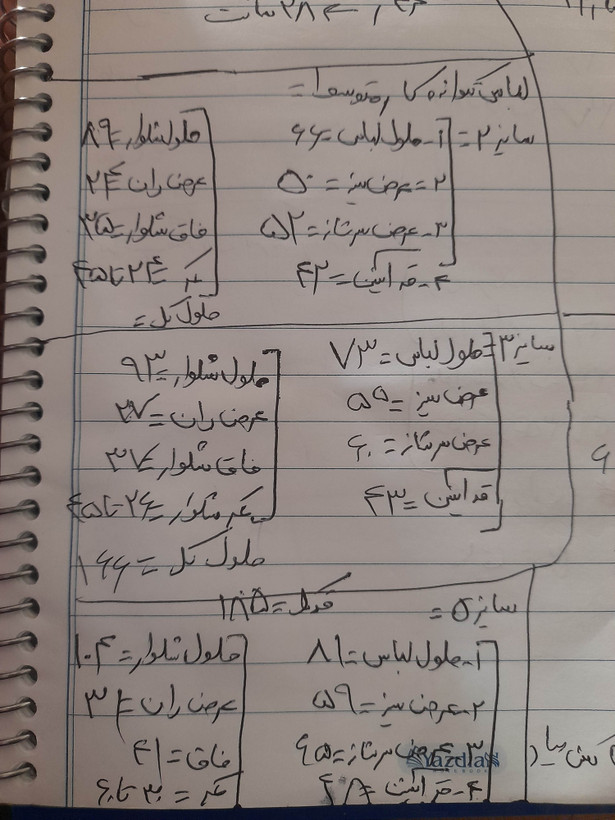 ۲۸۴ سانت
سایز ۲ = ۱- طول لباس = ۶۶
۲ = عرض سینه = ۵۰
۳- عرض سرشانه = ۵۲
۴- قد آستین = ۴۲
طول شلوار = ۸۹
عرض ران = ۲۴
فاق شلوار = ۳۵
کمر = ۲۴ تا ۴۵
طول کل =
سایز ۳ = طول لباس = ۷۳
عرض سینه = ۵۵
عرض سرشانه = ۶۰
قد آستین = ۴۳
طول شلوار = ۹۳
عرض ران = ۲۷
فاق شلوار = ۳۷
کمر شلوار = ۲۶ تا ۴۵
طول کل = ۱۶۶
سایز ۵ = قد کل = ۱۸۵
۱- طول لباس = ۸۱
۲- عرض سینه = ۵۹
۳- عرض سرشانه = ۶۵
۴- قد آستین = ۴۸
طول شلوار = ۱۰۴
عرض ران = ۳۴
فاق = ۴۱
کمر = ۳۰ تا ۶۰